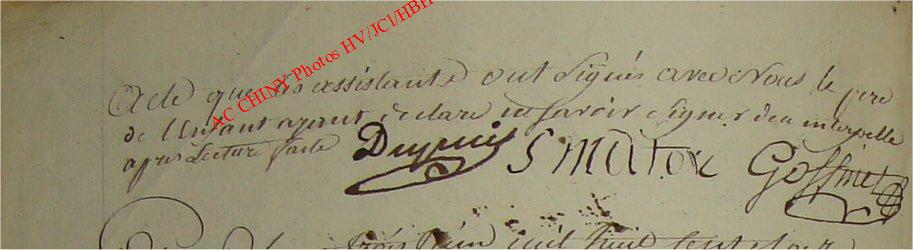 AC CHINY Photos HV/JCl/HBH
Acte que les assistants ont Signés avec Nous le pere
de l'Enfant ayant declaré ne savoir Signer deu interpelle
apres Lecture faite Dupuis S matot Goffinet
trois Juin mil huit Cent